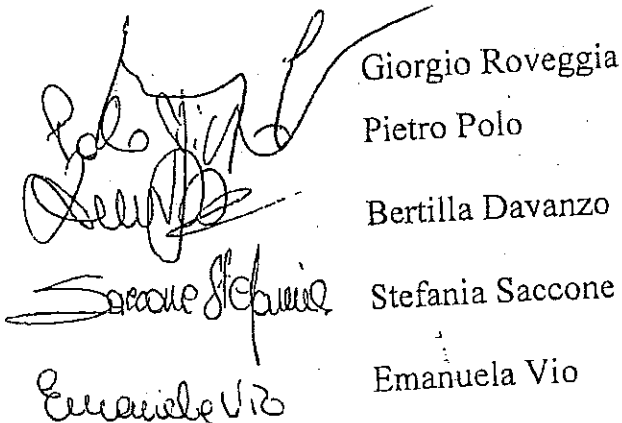 Giorgio Roveggia
Polo Pietro Pietro Polo
Bertilla Davanzo
Saccone Stefania Stefania Saccone
Emanuela Vio Emanuela Vio